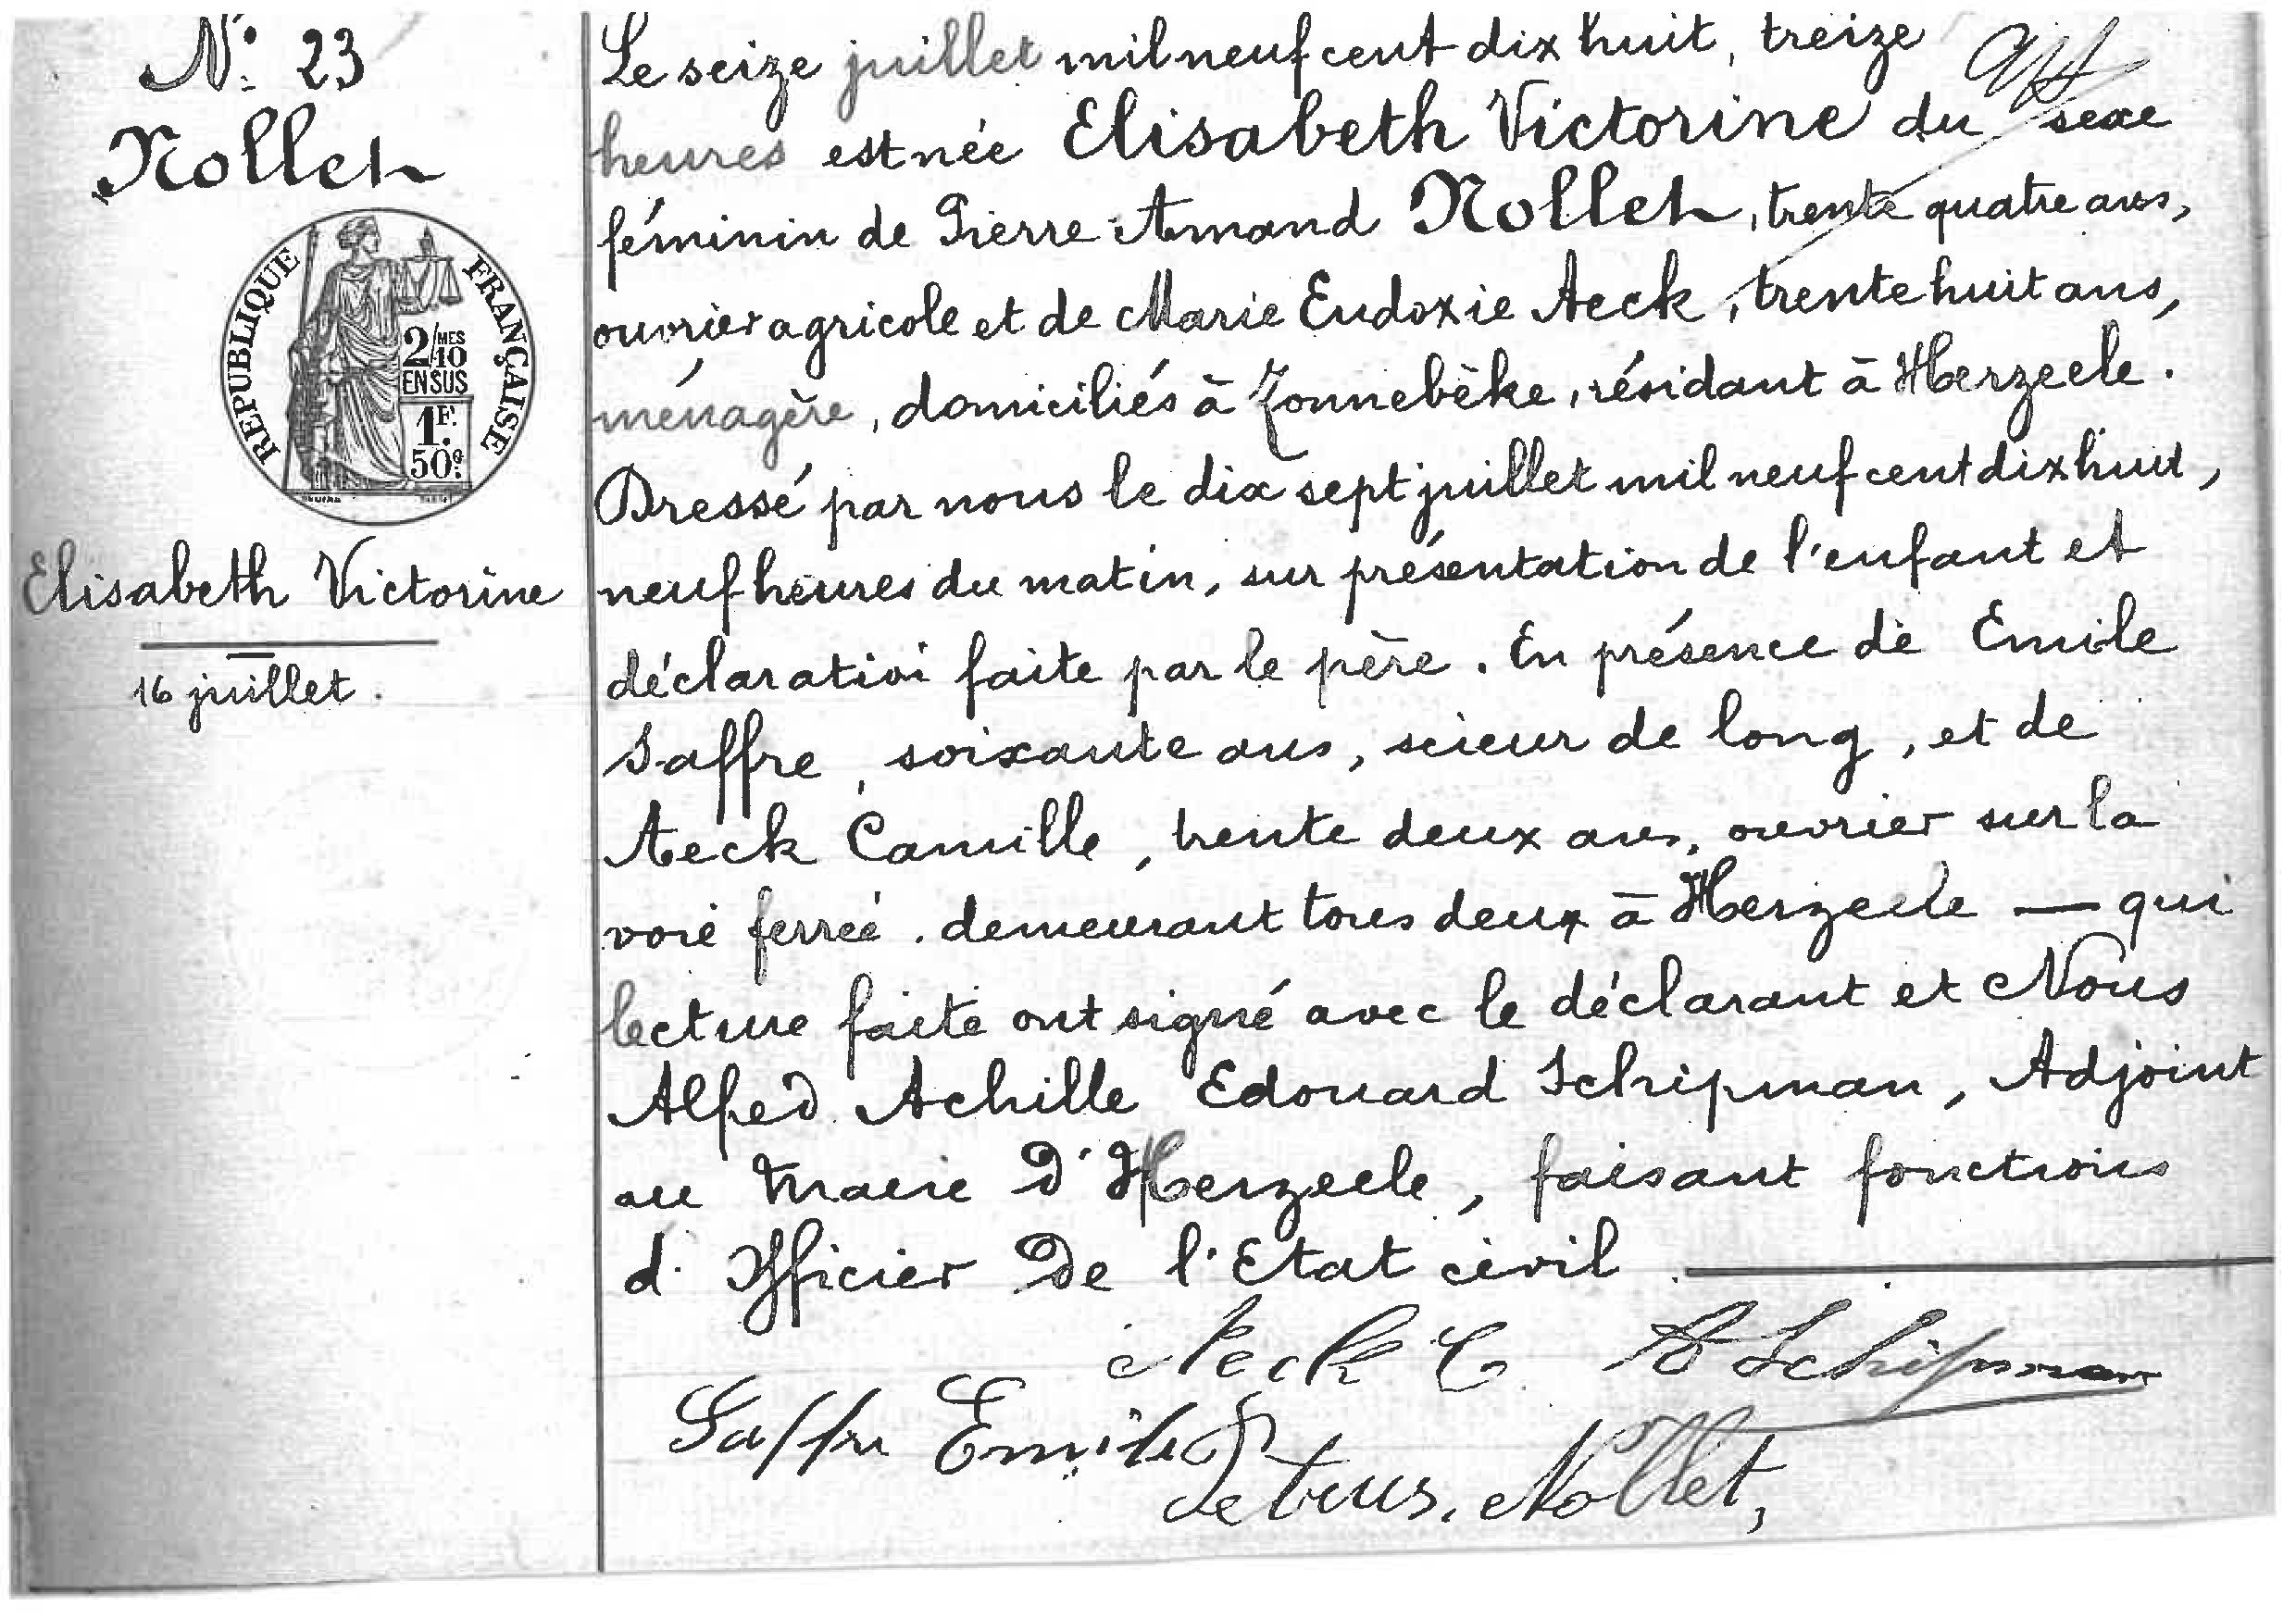 N° 23
Nollet
REPUBLIQUE FRANÇAISE
2/MES 10
EN SUS
1F.
50c.
Elisabeth Victorine
16 juillet.
Le seize juillet mil neuf cent dix huit, treize
heures est née Elisabeth Victorine du sexe
féminin de Pierre Amand Nollet, trente quatre ans,
ouvrier agricole et de Marie Eudoxie Aeck, trente huit ans,
ménagère, domiciliés à Zonnebèke, résidant à Herzeele.
Dressé par nous le dix sept juillet mil neuf cent dix huit,
neuf heures du matin, sur présentation de l'enfant et
déclaration faite par le père. En présence de Emile
Saffre, soixante ans, scieur de long, et de
Aeck Camille, trente deux ans, ouvrier sur la
voie ferrée. demeurant tous deux à Herzeele — qui
lecture faite ont signé avec le déclarant et Nous
Alfred Achille Edouard Schipman, Adjoint
au Maire d'Herzeele, faisant fonctions
d'Officier de l'Etat civil
Aeck C. A Schipman
Saffre Emile
Petrus. Nollet,